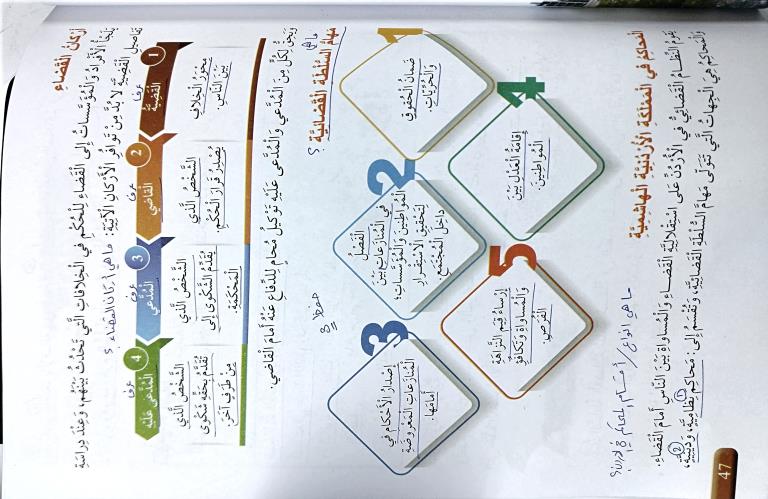 أَرْكانُ الْقَضاءِ
يَلْجَأُ الْأَفْرادُ وَالْمُؤَسَّساتُ إِلى الْقَضاءِ لِلْحُكْمِ في الْخِلافاتِ الَّتي تَحْدُثُ بَيْنَهُمْ، وَعِنْدَ دِراسَةِ
تَفاصيلِ الْقَضِيَّةِ لا بُدَّ مِنْ تَوافُرِ الْأَرْكانِ الْآتِيَةِ: ما هي أركان القضاء ؟
عرف
1
الْقَضِيَّةُ
مِحْوَرُ الْخِلافِ
بَيْنَ النّاسِ.
عرف
2
الْقاضي
الشَّخْصُ الَّذي
يُصْدِرُ قَرارَ الْحُكْمِ.
عرف
3
الْمُدَّعي
الشَّخْصُ الَّذي
يُقَدِّمُ الشَّكْوى إِلى
الْمَحْكَمَةِ.
عرف
4
الْمُدَّعى عَلَيْهِ
الشَّخْصُ الَّذي
تُقَدَّمُ بِحَقِّهِ شَكْوى
مِنْ طَرَفٍ آخَرَ.
وَيَحِقُّ لِكُلٍّ مِنَ الْمُدَّعي وَالْمُدَّعى عَلَيْهِ تَوْكيلُ مُحامٍ لِلدِّفاعِ عَنْهُ أَمامَ الْقاضي.
ما هي
مَهامُّ السُّلْطَةِ الْقَضائِيَّةِ ؟
1
ضَمانُ الْحُقوقِ
وَالْحُرِّيّاتِ.
2
الْفَصْلُ
في الْمُنازَعاتِ بَيْنَ
الْمُواطِنينَ وَالْمُؤَسَّساتِ؛
لِتَحْقيقِ الِاسْتِقْرارِ
داخِلَ الْمُجْتَمَعِ.
3
إِصْدارُ الْأَحْكامِ في
الْمُنازَعاتِ الْمَعْروضَةِ
أَمامَها.
4
إِقامَةُ الْعَدْلِ بَيْنَ
الْمُواطِنينَ.
5
إِرْساءُ قِيَمِ النَّزاهَةِ
وَالْمُساواةِ وَتَكافُؤِ
الْفُرَصِ.
الْمَحاكِمُ في الْمَمْلَكَةِ الْأُرْدُنِيَّةِ الْهاشِمِيَّةِ
ما هي انواع / أقسام المحاكم في الاردن؟
يَقومُ النِّظامُ الْقَضائِيُّ في الْأُرْدُنِّ عَلى اسْتِقْلالِيَّةِ الْقَضاءِ وَالْمُساواةِ بَيْنَ النّاسِ أَمامَ الْقَضاءِ.
وَالْمَحاكِمُ هِيَ الْجِهاتُ الَّتي تَتَوَلّى مَهامَّ السُّلْطَةِ الْقَضائِيَّةِ، وَتُقْسَمُ إِلى: مَحاكِمَ نِظامِيَّةٍ، وَدينِيَّةٍ،
47